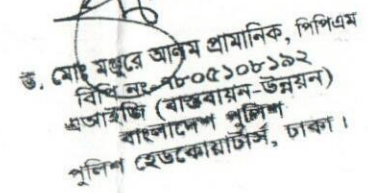 ড. মোঃ মঞ্জুরে আলম প্রামানিক, পিপিএম
বিপি নং-৭৮০৫১০৮১৯২
এআইজি (বাস্তবায়ন-উন্নয়ন)
বাংলাদেশ পুলিশ
পুলিশ হেডকোয়ার্টার্স, ঢাকা।